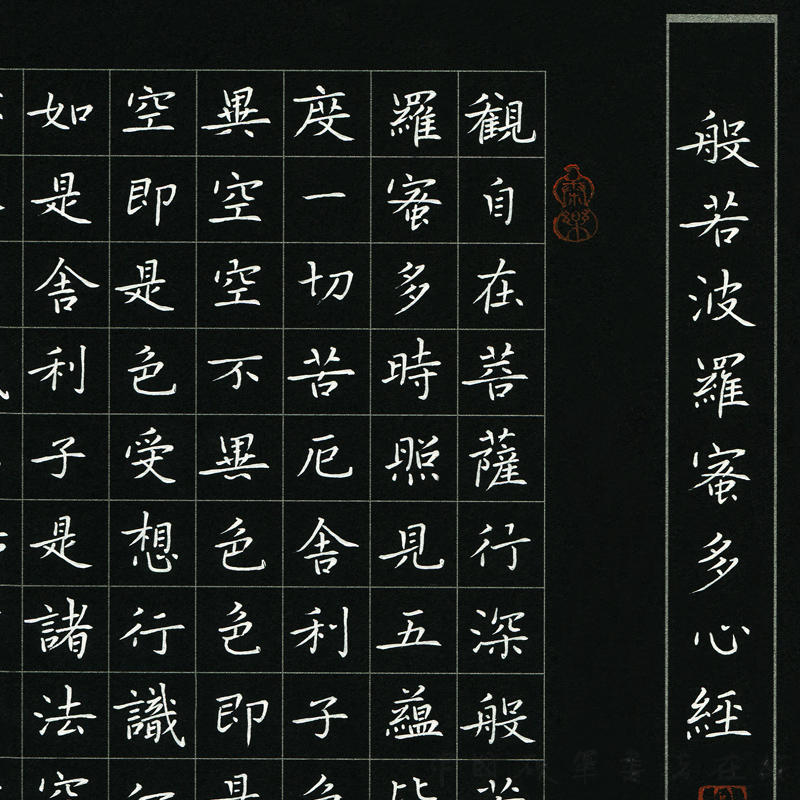 般若波羅蜜多心經
觀自在菩薩行深般若
羅蜜多時照見五蘊皆
度一切苦厄舍利子色
異空空不異色色即是
空即是色受想行識
如是舍利子是諸法空